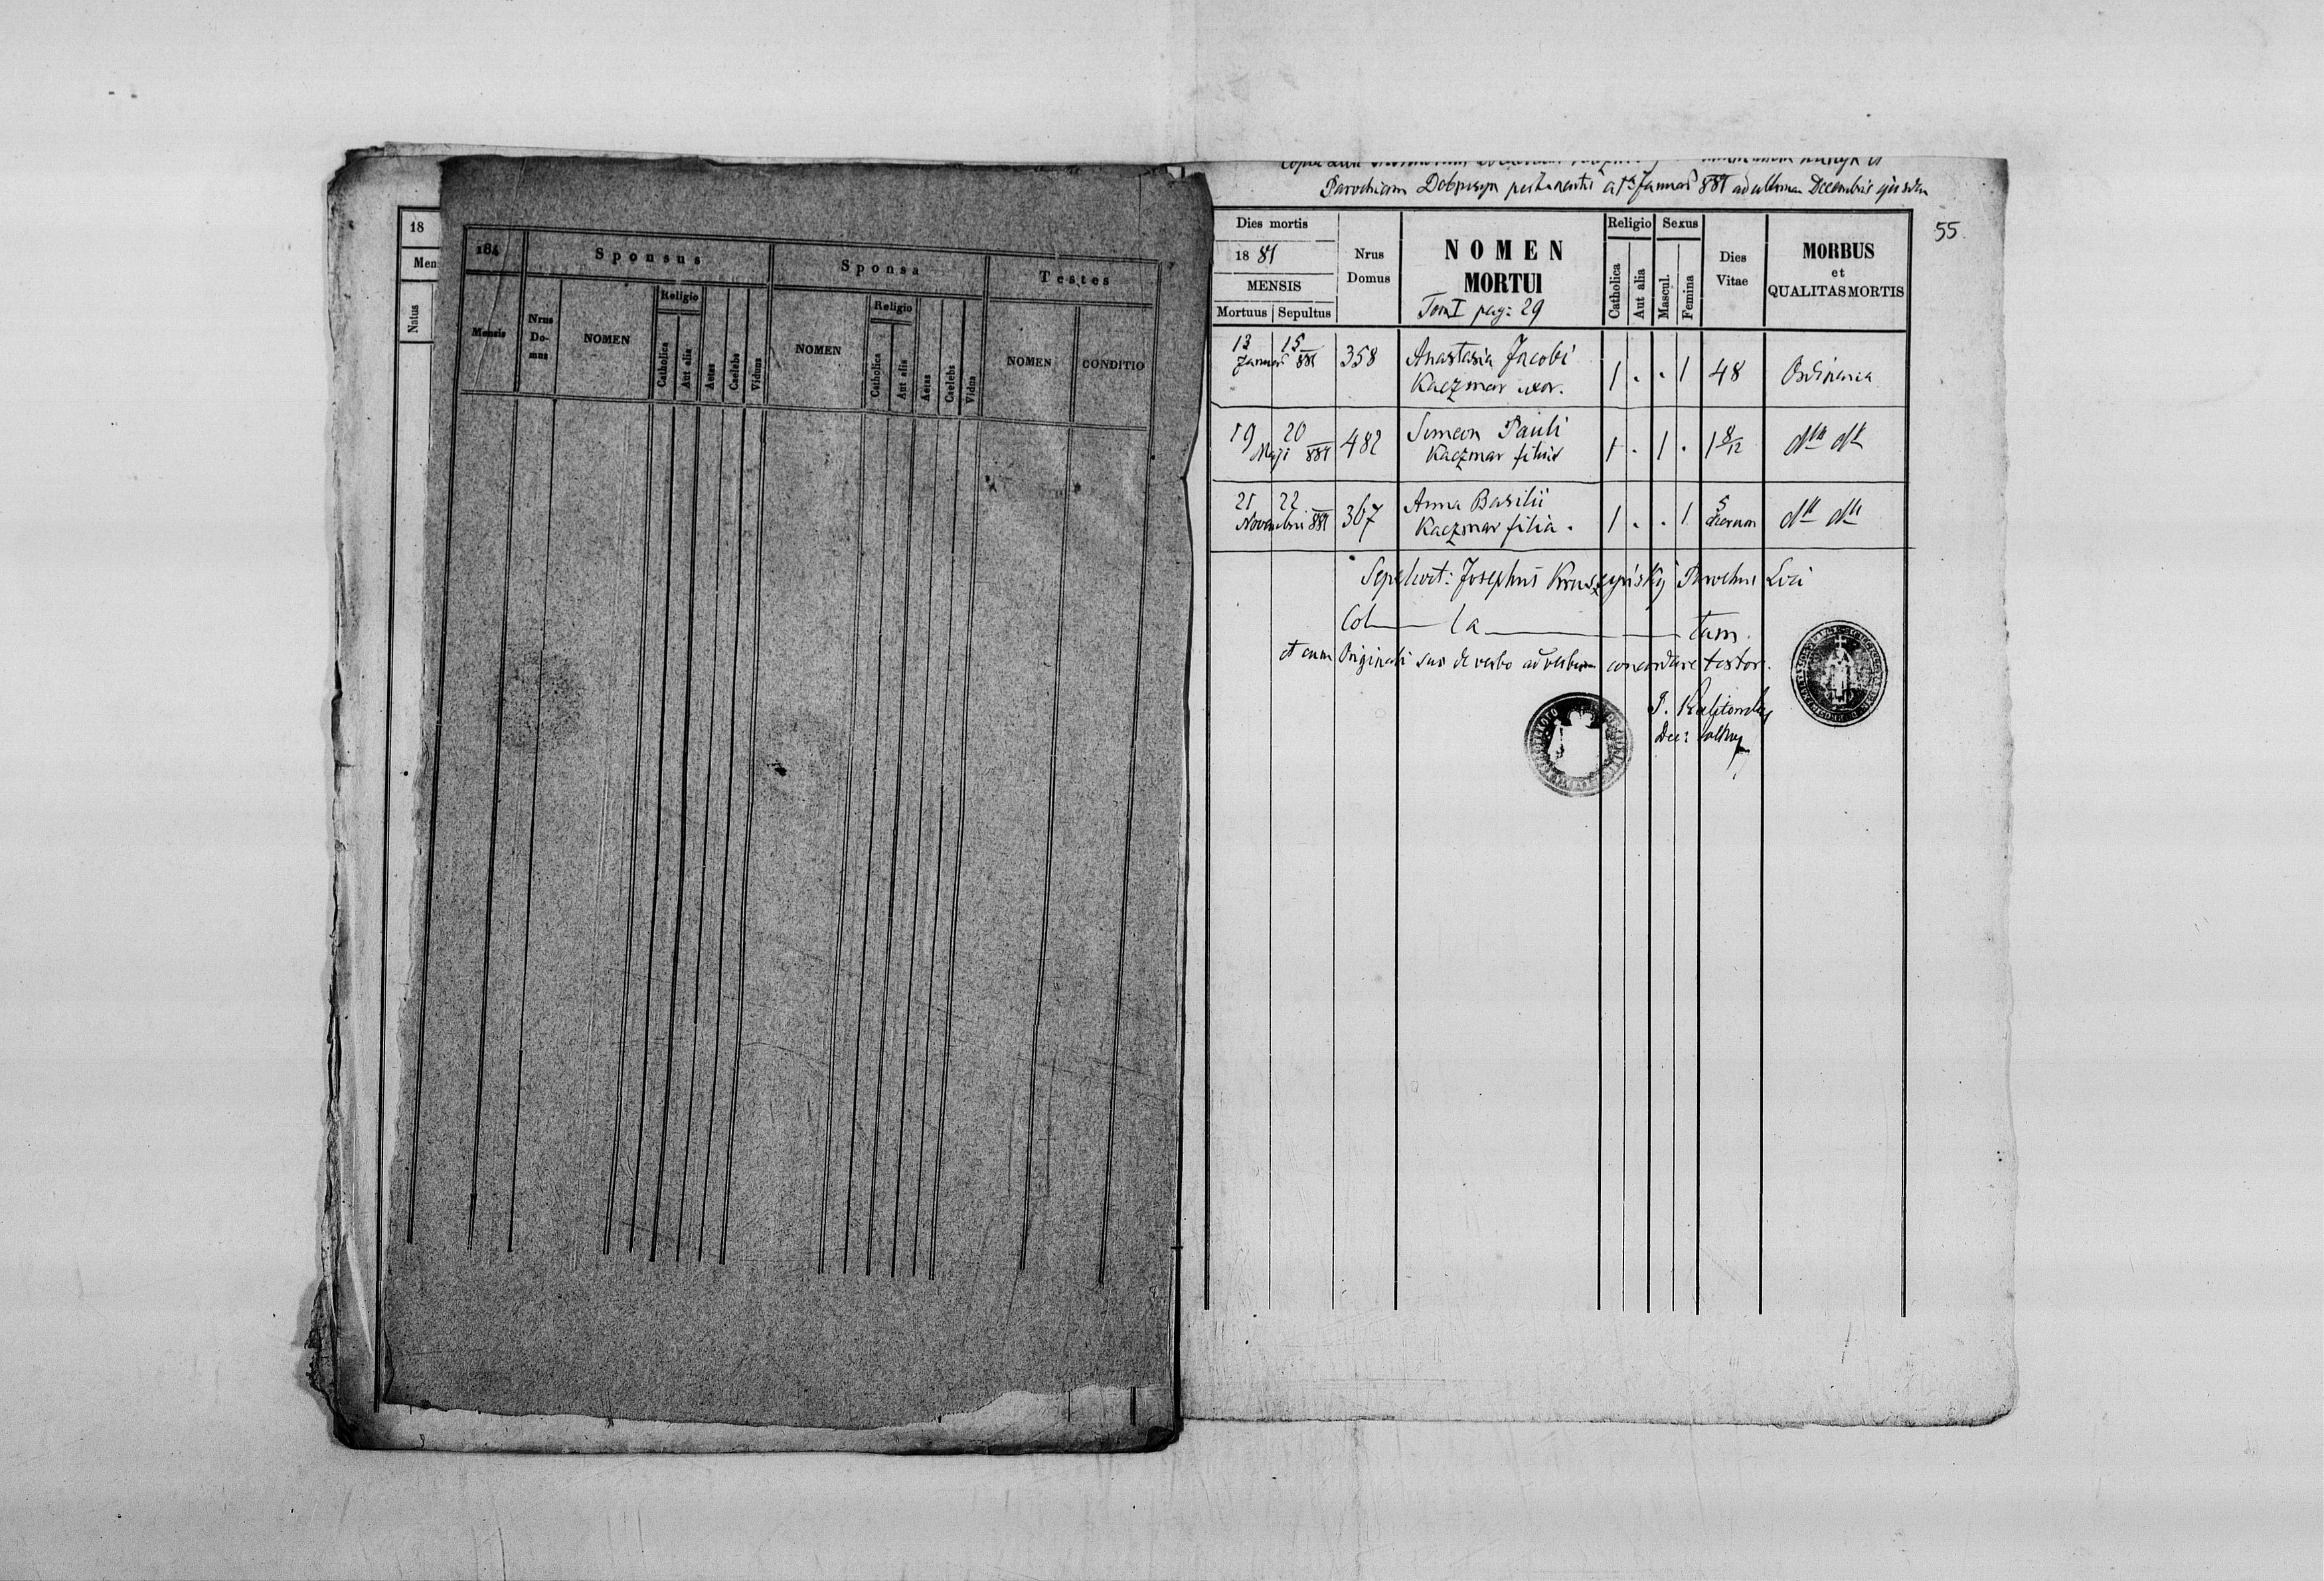 18
Men
Natus
184
Sponsus
Sponsa
Testes
Mensis
Nrus Do-mus
NOMEN
Religio
Catholica
Aut alia
Aetas
Caelebs
Viduus
NOMEN
Religio
Catholica
Aut alia
Aetas
Caelebs
Vidua
NOMEN
CONDITIO
Parochiam pertinentis a 1ma Januarii 881 ad ultimam Decembris ejusdem
55.
Dies mortis
1881
MENSIS
Mortuus
Sepultus
Nrus Domus
NOMEN
MORTUI
Tom I pag: 29
Religio
Catholica
Aut alia
Sexus
Mascul.
Femina
Dies Vitae
MORBUS
et
QUALITAS MORTIS
13 15 Januarii 881 358 Anastasia Jacobi Kaczmar uxor. 1 . . 1 48 Ordinaria
19 20 Maji 881 482 Simeon Pauli Kaczmar filius 1 . 1 . 1 8/12 dtt dtt
21 22 Novembris 881 367 Anna Basilii Kaczmar filia . 1 . . 1 5 dierum dtt dtt
Sepelivit: Josephus Parochus Loci
Col la tam.
et cum Originali suo de verbo ad verbum concordare testor.